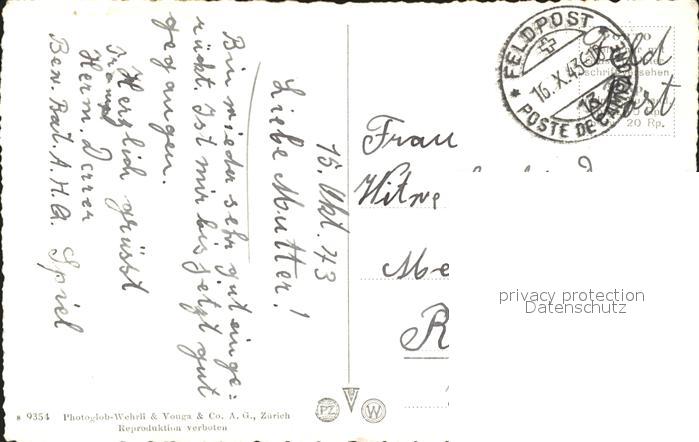 15. Okt. 43
Liebe Mutter!
Bin wieder sehr gut einge=
rückt. Ist mir bis jetzt gut
gegangen.
Herzlich grüsst
Herm.
Bat. A.H.Q. Spiel
FELDPOST
16.X.43
POSTE DE CAMPAGNE
Feld
Post
20 Rp.
Frau
Me
R
privacy protection
Datenschutz
9354 Photoglob-Wehrli & Vouga & Co. A. G., Zürich
Reproduktion verboten
PZ
W